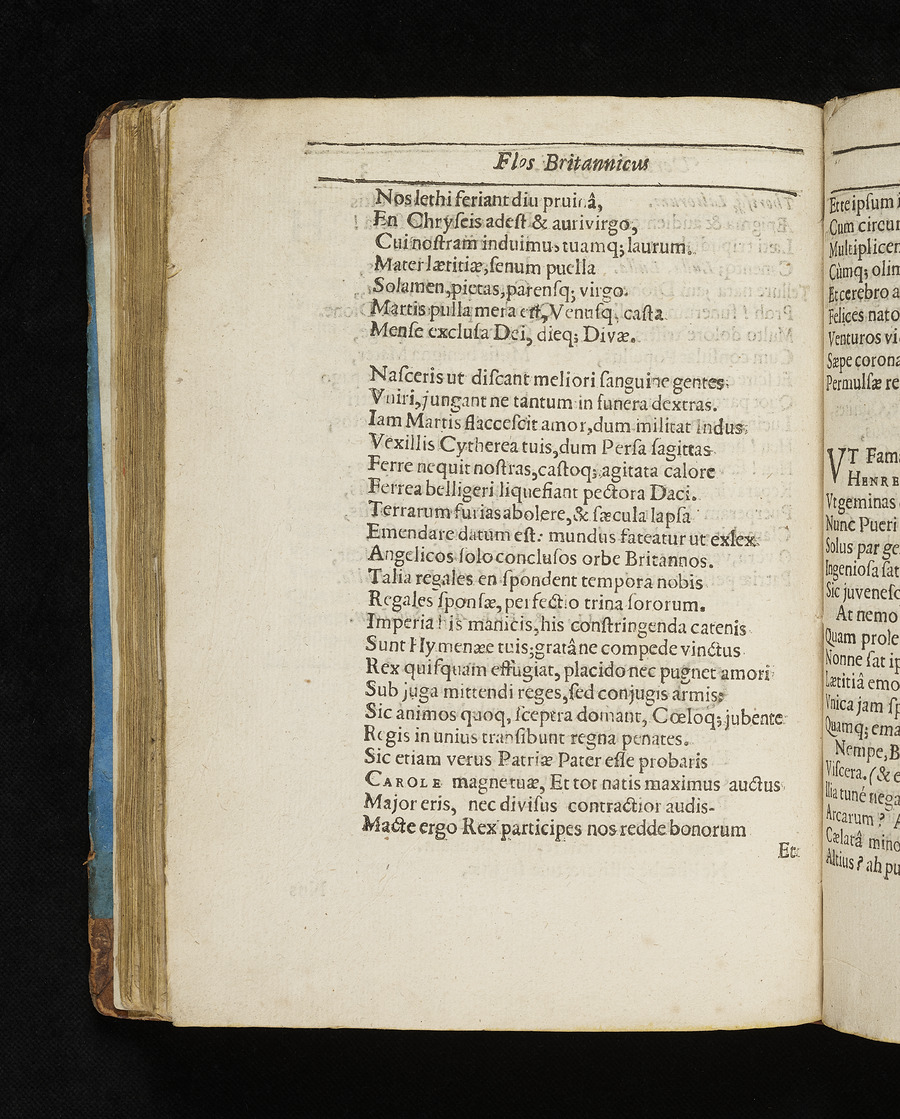 Flos Britannicus
Nos lethi feriant diu pruinâ,
En Chryſeis adeſt & aurivirgo,
Cui noſtram induimus tuamq; laurum.
Mater lætitiæ, ſenum puella
Solamen, pietas, parenſq; virgo.
Martis pulla mera eſt, Venuſq, caſta
Menſe excluſa Dei, dieq; Divæ.
Naſceris ut diſcant meliori ſanguine gentes;
Vniri, jungant ne tantum in funera dextras.
Iam Martis flacceſcit amor, dum militat Indus;
Vexillis Cytherea tuis, dum Perſa ſagittas
Ferre nequit noſtras, caſtoq; agitata calore
Ferrea belligeri liquefiant pectora Daci.
Terrarum furias abolere, & ſæcula lapſa
Emendare datum eſt: mundus fateatur ut exlex
Angelicos ſolo concluſos orbe Britannos.
Talia regales en ſpondent tempora nobis
Regales ſponſæ, perfectio trina ſororum.
Imperia his manicis, his conſtringenda catenis
Sunt Hymenæe tuis; gratâ ne compede vinctus
Rex quiſquam effugiat, placido nec pugnet amori
Sub juga mittendi reges, ſed conjugis armis;
Sic animos quoq, ſceptra domant, Cœloq; jubente
Regis in unius tranſibunt regna penates.
Sic etiam verus Patriæ Pater eſſe probaris
CAROLE magne tuæ, Et tot natis maximus auctus
Major eris, nec diviſus contractior audis-
Macte ergo Rex participes nos redde bonorum
Et
Et te ipſum
Cum circu
Multiplicen
Cùmq; olim
Et cerebro a
Felices nato
Venturos vi
Sæpe corona
Permulſæ re
VT Fam
HENRE
Vt geminas
Nunc Pueri
Solus par ge
Ingenioſa ſat
Sic juveneſc
At nemo
Quam prole
Nonne ſat ip
Lætitiâ emo
Vnica jam ſp
Quamq; ema
Nempe, B
Viſcera. (& e
Ilia tuné nega
Arcarum? A
Cælatâ mino
Altius? ah pu